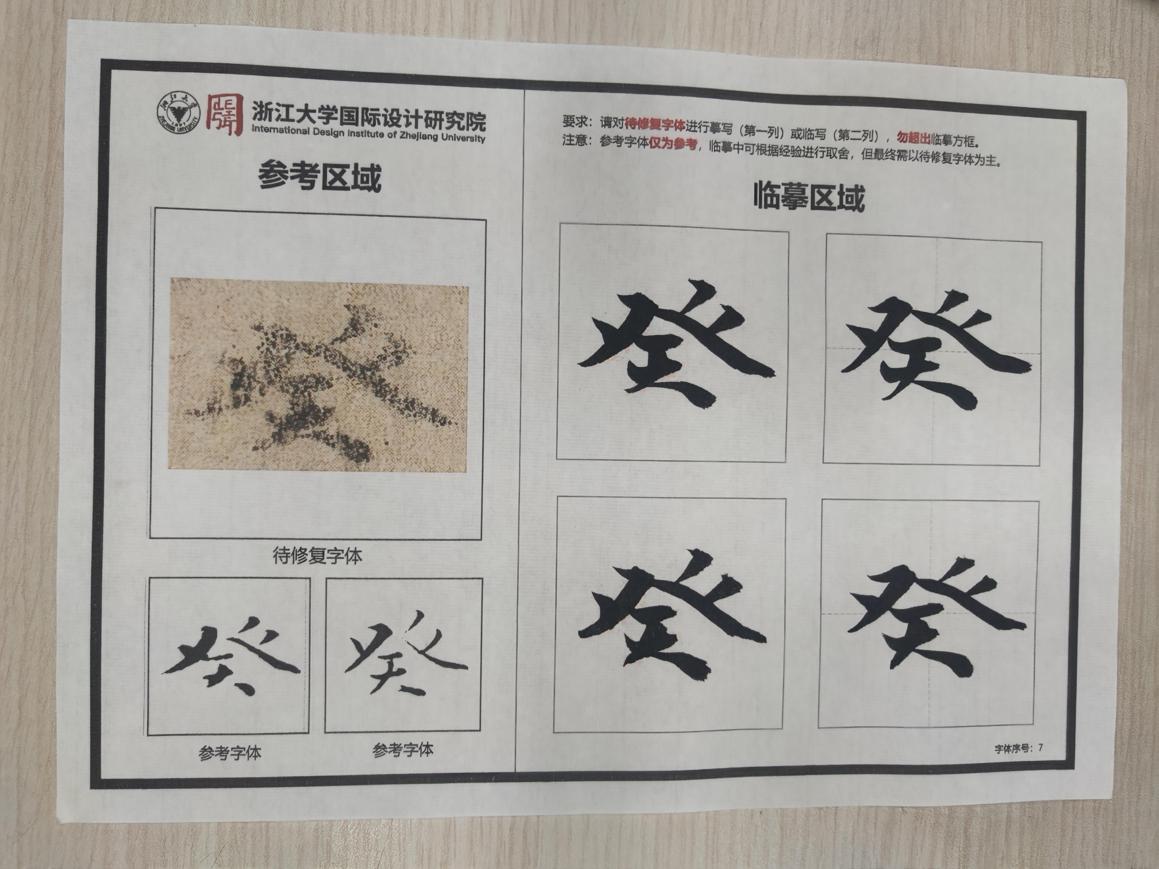 浙江大学国际设计研究院
International Design Institute of Zhejiang University
参考区域
癸
待修复字体
癸
癸
参考字体
参考字体
要求：请对待修复字体进行摹写（第一列）或临写（第二列），勿超出临摹方框。
注意：参考字体仅为参考，临摹中可根据经验进行取舍，但最终需以待修复字体为主。
临摹区域
癸
癸
癸
癸
字体序号：7